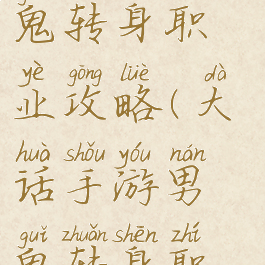 鬼转身职
yè gōng lüè dà
业攻略(大
huà shǒu yóu nán
话手游男
guǐ zhuǎn shēn zhí
鬼转身职